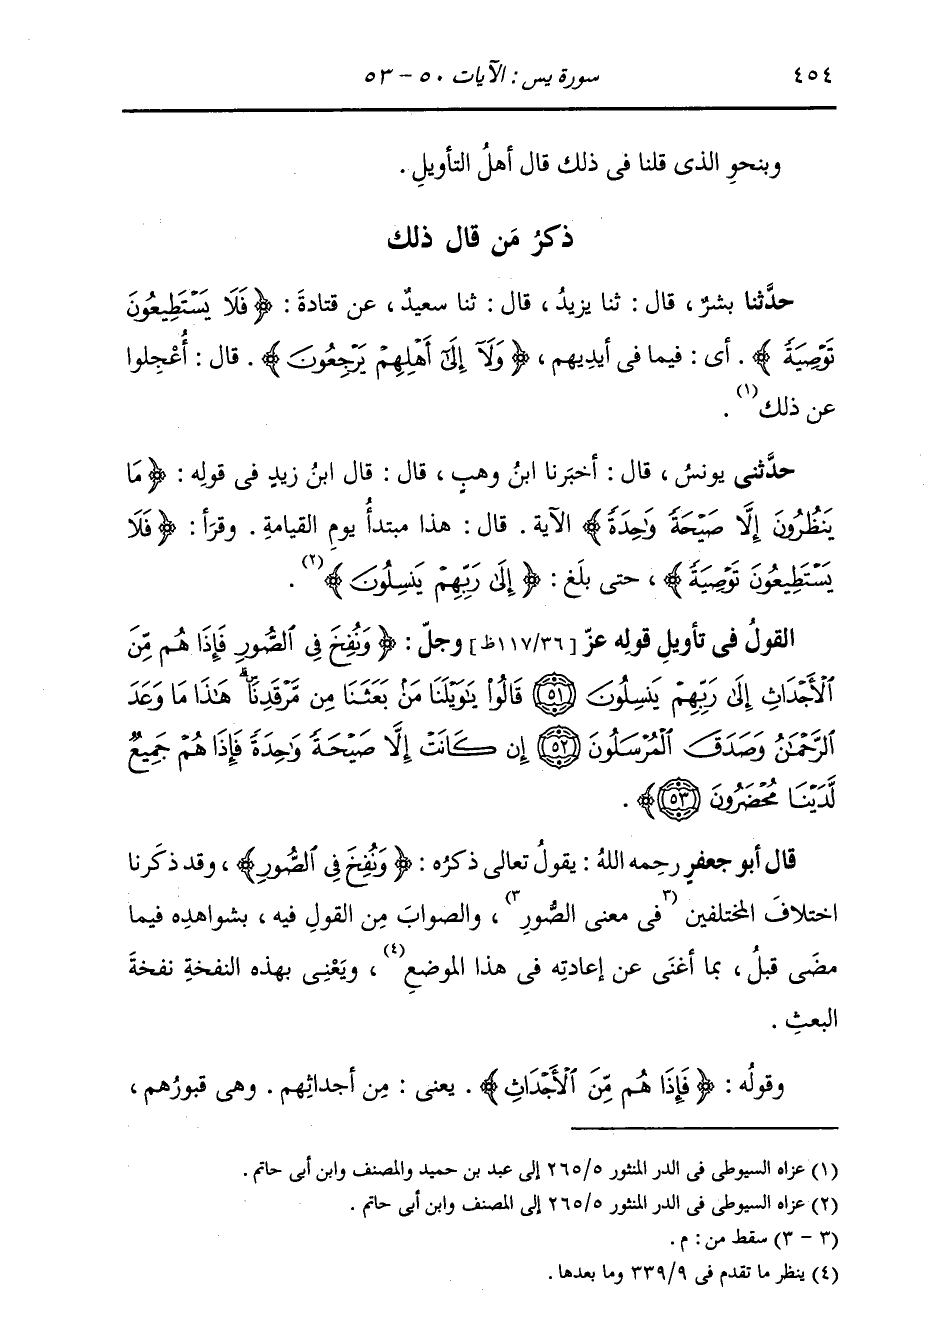 ٤٥٤ سورة يس : الآيات ٥٠ - ٥٣
وبنحوِ الذى قلنا فى ذلك قال أهلُ التأويلِ .
ذكرُ مَن قال ذلك
حدَّثنا بشرٌ ، قال : ثنا يزيدُ ، قال : ثنا سعيدٌ ، عن قتادةَ : ﴿ فَلَا يَسْتَطِيعُونَ
تَوْصِيَةً ﴾ . أى : فيما فى أيدِيهم ، ﴿ وَلَآ إِلَىٰٓ أَهْلِهِمْ يَرْجِعُونَ ﴾ . قال : أُعْجِلوا
عن ذلك(١) .
حدَّثنى يونسُ ، قال : أخبَرنا ابنُ وهبٍ ، قال : قال ابنُ زيدٍ فى قولِه : ﴿ مَا
يَنظُرُونَ إِلَّا صَيْحَةً وَٰحِدَةً ﴾ الآية . قال : هذا مبتدأُ يومِ القيامةِ . وقرَأ : ﴿ فَلَا
يَسْتَطِيعُونَ تَوْصِيَةً ﴾ ، حتى بلَغ : ﴿ إِلَىٰ رَبِّهِمْ يَنسِلُونَ ﴾(٢) .
القولُ فى تأويلِ قولِه عزّ [ ١١٧/٣٦ظ ] وجلّ : ﴿ وَنُفِخَ فِى ٱلصُّورِ فَإِذَا هُم مِّنَ
ٱلْأَجْدَاثِ إِلَىٰ رَبِّهِمْ يَنسِلُونَ ﴿٥١﴾ قَالُوا۟ يَٰوَيْلَنَا مَنۢ بَعَثَنَا مِن مَّرْقَدِنَا ۜ ۗ هَٰذَا مَا وَعَدَ
ٱلرَّحْمَٰنُ وَصَدَقَ ٱلْمُرْسَلُونَ ﴿٥٢﴾ إِن كَانَتْ إِلَّا صَيْحَةً وَٰحِدَةً فَإِذَا هُمْ جَمِيعٌ
لَّدَيْنَا مُحْضَرُونَ ﴿٥٣﴾ ﴾ .
قال أبو جعفرٍ رحِمه اللهُ : يقولُ تعالى ذكرُه : ﴿ وَنُفِخَ فِى ٱلصُّورِ ﴾ ، وقد ذكَرنا
اختلافَ المختلفين (٣فى معنى الصُّورِ٣) ، والصوابَ مِن القولِ فيه ، بشواهدِه فيما
مضَى قبلُ ، بما أغنَى عن إعادتِه فى هذا الموضعِ(٤) ، ويَعْنِى بهذه النفخةِ نفخةَ
البعثِ .
وقولُه : ﴿ فَإِذَا هُم مِّنَ ٱلْأَجْدَاثِ ﴾ . يعنى : مِن أجداثِهم . وهى قبورُهم ،
(١) عزاه السيوطى فى الدر المنثور ٢٦٥/٥ إلى عبد بن حميد والمصنف وابن أبى حاتم .
(٢) عزاه السيوطى فى الدر المنثور ٢٦٥/٥ إلى المصنف وابن أبى حاتم .
(٣ - ٣) سقط من : م .
(٤) ينظر ما تقدم فى ٣٣٩/٩ وما بعدها .